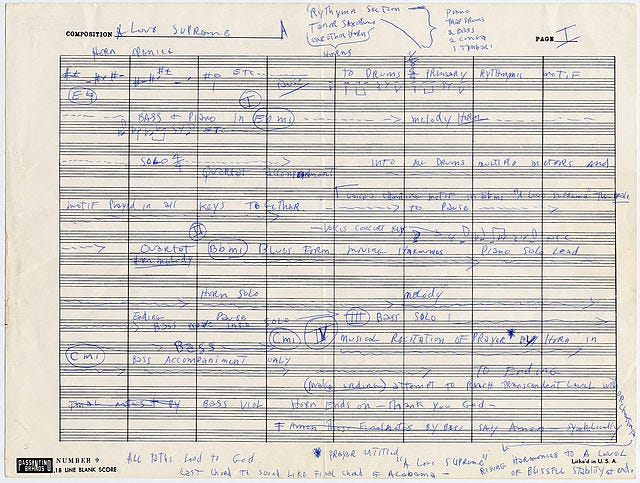 COMPOSITION A Love Supreme
Rythym Section
Tenor Saxophone
one other horn
HORNS
Piano
Trap Drums
2 Bass
2 Conga
1 Tymbali
PAGE I
Horn
ETC
TO DRUMS PRIMARY RYTHMIC MOTIF
E♮ I
BASS + PIANO in Eb mi melody Horn
ETC
SOLO Quartet Accompaniment INTO ALL DRUMS MULTIPLE METERS AND
Voices chanting motif in Eb mi "A Love Supreme"
MOTIF Played in all KEYS TOGETHER TO Pause
II
Quartet Bb mi Blues Form moving Harmonies Piano Solo Lead
Horn melody
Horn SOLO melody
ENDING Pause
BASS INTO SOLO III BASS SOLO
BASS C mi IV MUSICAL Recitation of PRAYER BY HORN in
C mi
BASS ACCOMPANIMENT ONLY
TO Ending
(make ending) attempt to Reach Transcendent Level with
BY BASS VIOL Horn Ends on Thank You God
Amen BY BASS SAY Amen Symbolically
PASSANTINO BRANDS NUMBER 9
18 LINE BLANK SCORE
Litho'd in U.S.A.
ALL PATHS Lead to God.
LAST Chord to Sound Like Final Chord of Alabama
* PRAYER entitled
"A Love Supreme"
RISING HARMONIES TO A LEVEL
OF BLISSFUL STABILITY at end.